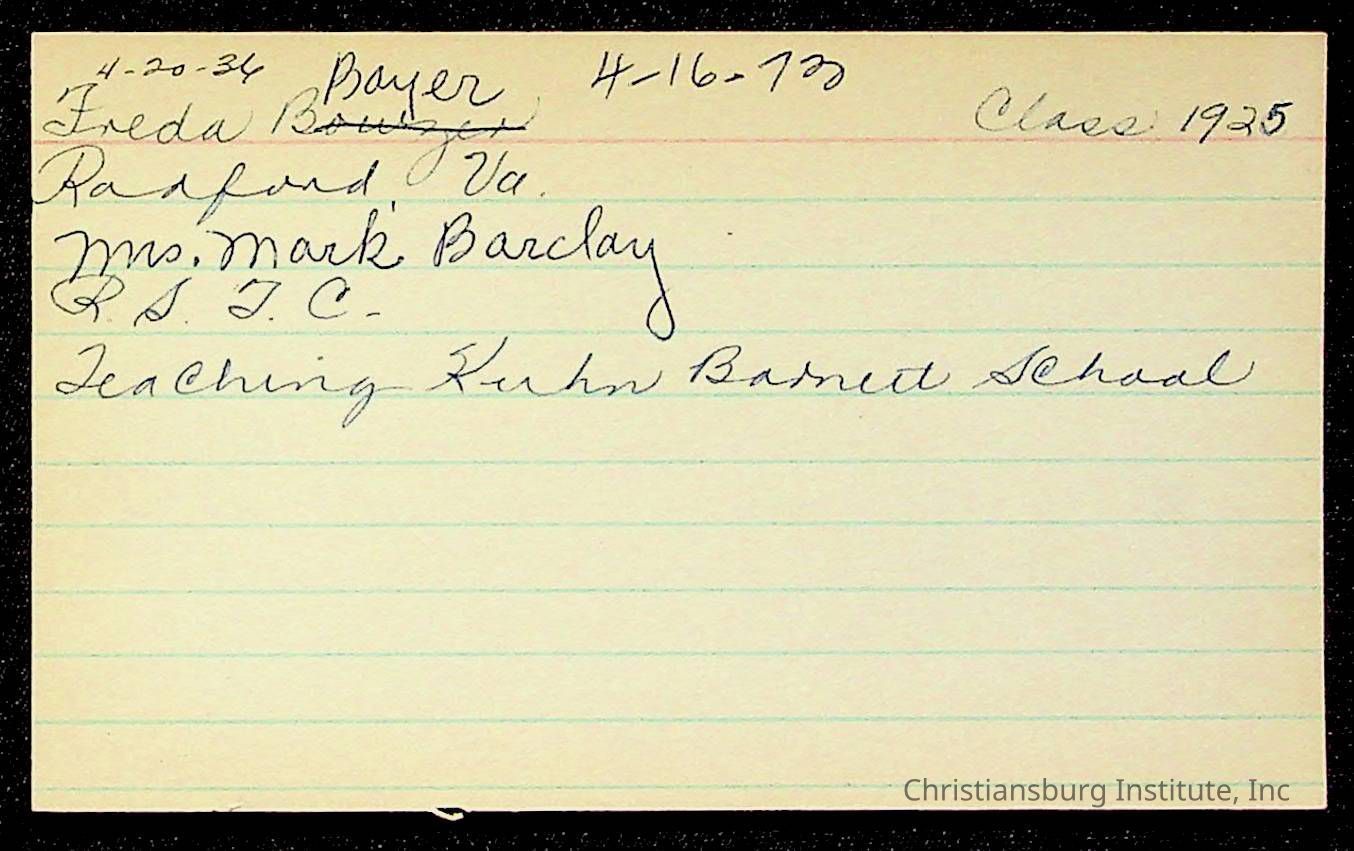 4-20-36 Boyer 4-16-73
Freda Bowzer Class 1925
Radford, Va.
Mrs. Mark Barclay
R. S. T. C.
Teaching Kuhn Barnett School
Christiansburg Institute, Inc